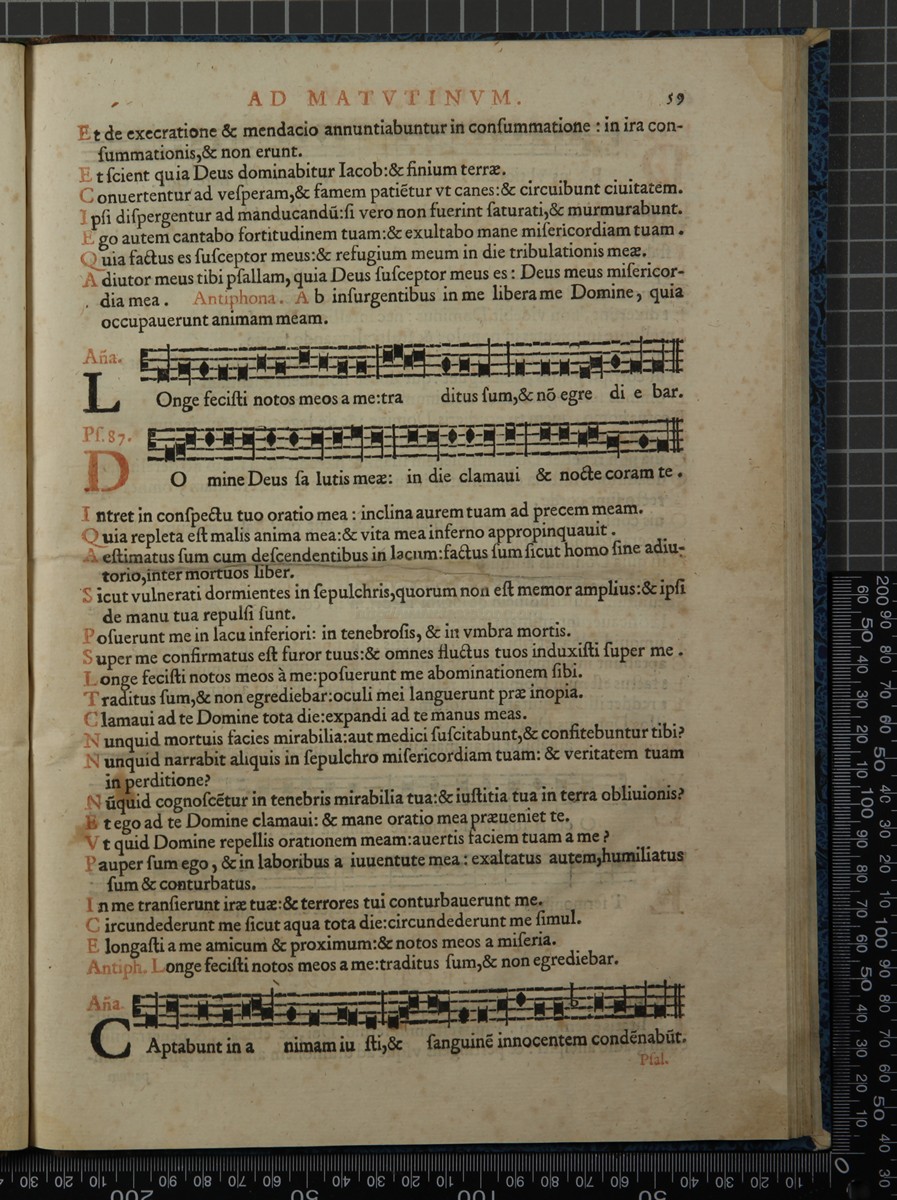 AD MATVTINVM. 59
Et de execratione & mendacio annuntiabuntur in conſummatione : in ira con-
ſummationis,& non erunt.
Et ſcient quia Deus dominabitur Iacob:& finium terræ.
Conuertentur ad veſperam,& famem patiētur vt canes:& circuibunt ciuitatem.
Ipſi diſpergentur ad manducandū:ſi vero non fuerint ſaturati,& murmurabunt.
Ego autem cantabo fortitudinem tuam:& exultabo mane miſericordiam tuam .
Quia factus es ſuſceptor meus:& refugium meum in die tribulationis meæ.
Adiutor meus tibi pſallam, quia Deus ſuſceptor meus es : Deus meus miſericor-
dia mea . Antiphona. Ab inſurgentibus in me libera me Domine, quia
occupauerunt animam meam.
Aña.
LOnge feciſti notos meos a me:tra ditus ſum,& nō egre di e bar.
Pſ.87.
DO mine Deus ſa lutis meæ: in die clamaui & nocte coram te .
Intret in conſpectu tuo oratio mea : inclina aurem tuam ad precem meam.
Quia repleta eſt malis anima mea:& vita mea inferno appropinquauit .
Aeſtimatus ſum cum deſcendentibus in lacum:factus ſum ſicut homo ſine adiu-
torio,inter mortuos liber.
Sicut vulnerati dormientes in ſepulchris,quorum non eſt memor amplius:& ipſi
de manu tua repulſi ſunt.
Poſuerunt me in lacu inferiori: in tenebroſis, & in vmbra mortis.
Super me confirmatus eſt furor tuus:& omnes fluctus tuos induxiſti ſuper me .
Longe feciſti notos meos à me:poſuerunt me abominationem ſibi.
Traditus ſum,& non egrediebar:oculi mei languerunt præ inopia.
Clamaui ad te Domine tota die:expandi ad te manus meas.
Nunquid mortuis facies mirabilia:aut medici ſuſcitabunt,& confitebuntur tibi?
Nunquid narrabit aliquis in ſepulchro miſericordiam tuam: & veritatem tuam
in perditione?
Nūquid cognoſcētur in tenebris mirabilia tua:& iuſtitia tua in terra obliuionis?
Et ego ad te Domine clamaui: & mane oratio mea præueniet te.
Vt quid Domine repellis orationem meam:auertis faciem tuam a me ?
Pauper ſum ego , & in laboribus a iuuentute mea : exaltatus autem,humiliatus
ſum & conturbatus.
In me tranſierunt iræ tuæ:& terrores tui conturbauerunt me.
Circundederunt me ſicut aqua tota die:circundederunt me ſimul.
Elongaſti a me amicum & proximum:& notos meos a miſeria.
Antiph. Longe feciſti notos meos a me:traditus ſum,& non egrediebar.
Aña.
CAptabunt in a nimam iu ſti,& ſanguinē innocentem condēnabūt.
Pſal.